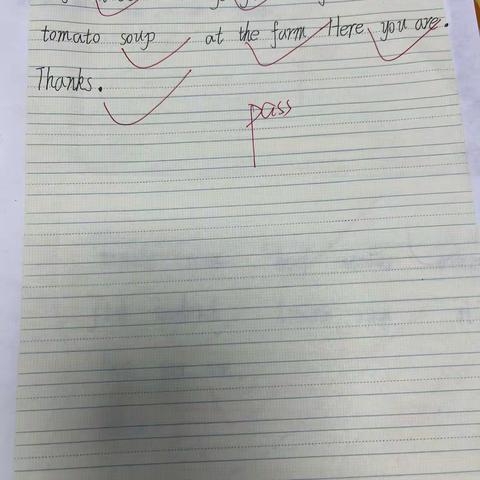 tomato soup at the farm Here you are.
Thanks.
pass